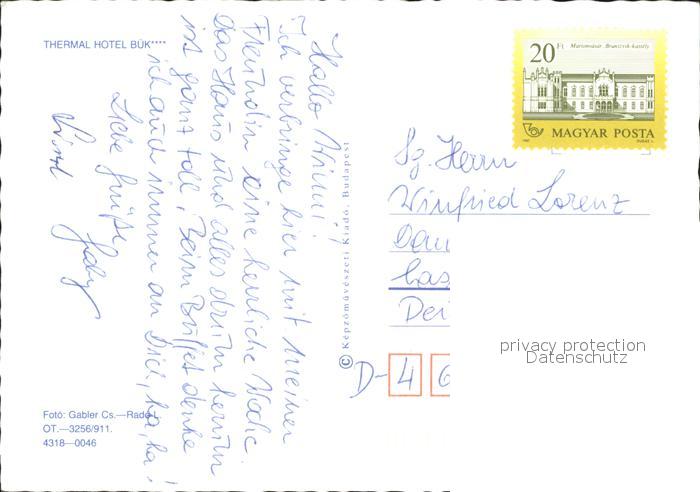 THERMAL HOTEL BÜK****
Hallo Winni!
Ich verbringe hier mit meiner
Freundin eine herrliche Woche.
Das Haus und alles drum herum
ist ganz toll. Beim Buffet denke
ich auch immer an Dich, ha, ha!
Liebe Grüße
Gaby
Fotó: Gabler Cs.—Radó
OT.—3256/911.
4318—0046
© Képzőművészeti Kiadó, Budapest
20 Ft
Martonvásár, Brunszvik-kastély
MAGYAR POSTA
Sz. Herrn
Winfried Lorenz
D-4
privacy protection
Datenschutz